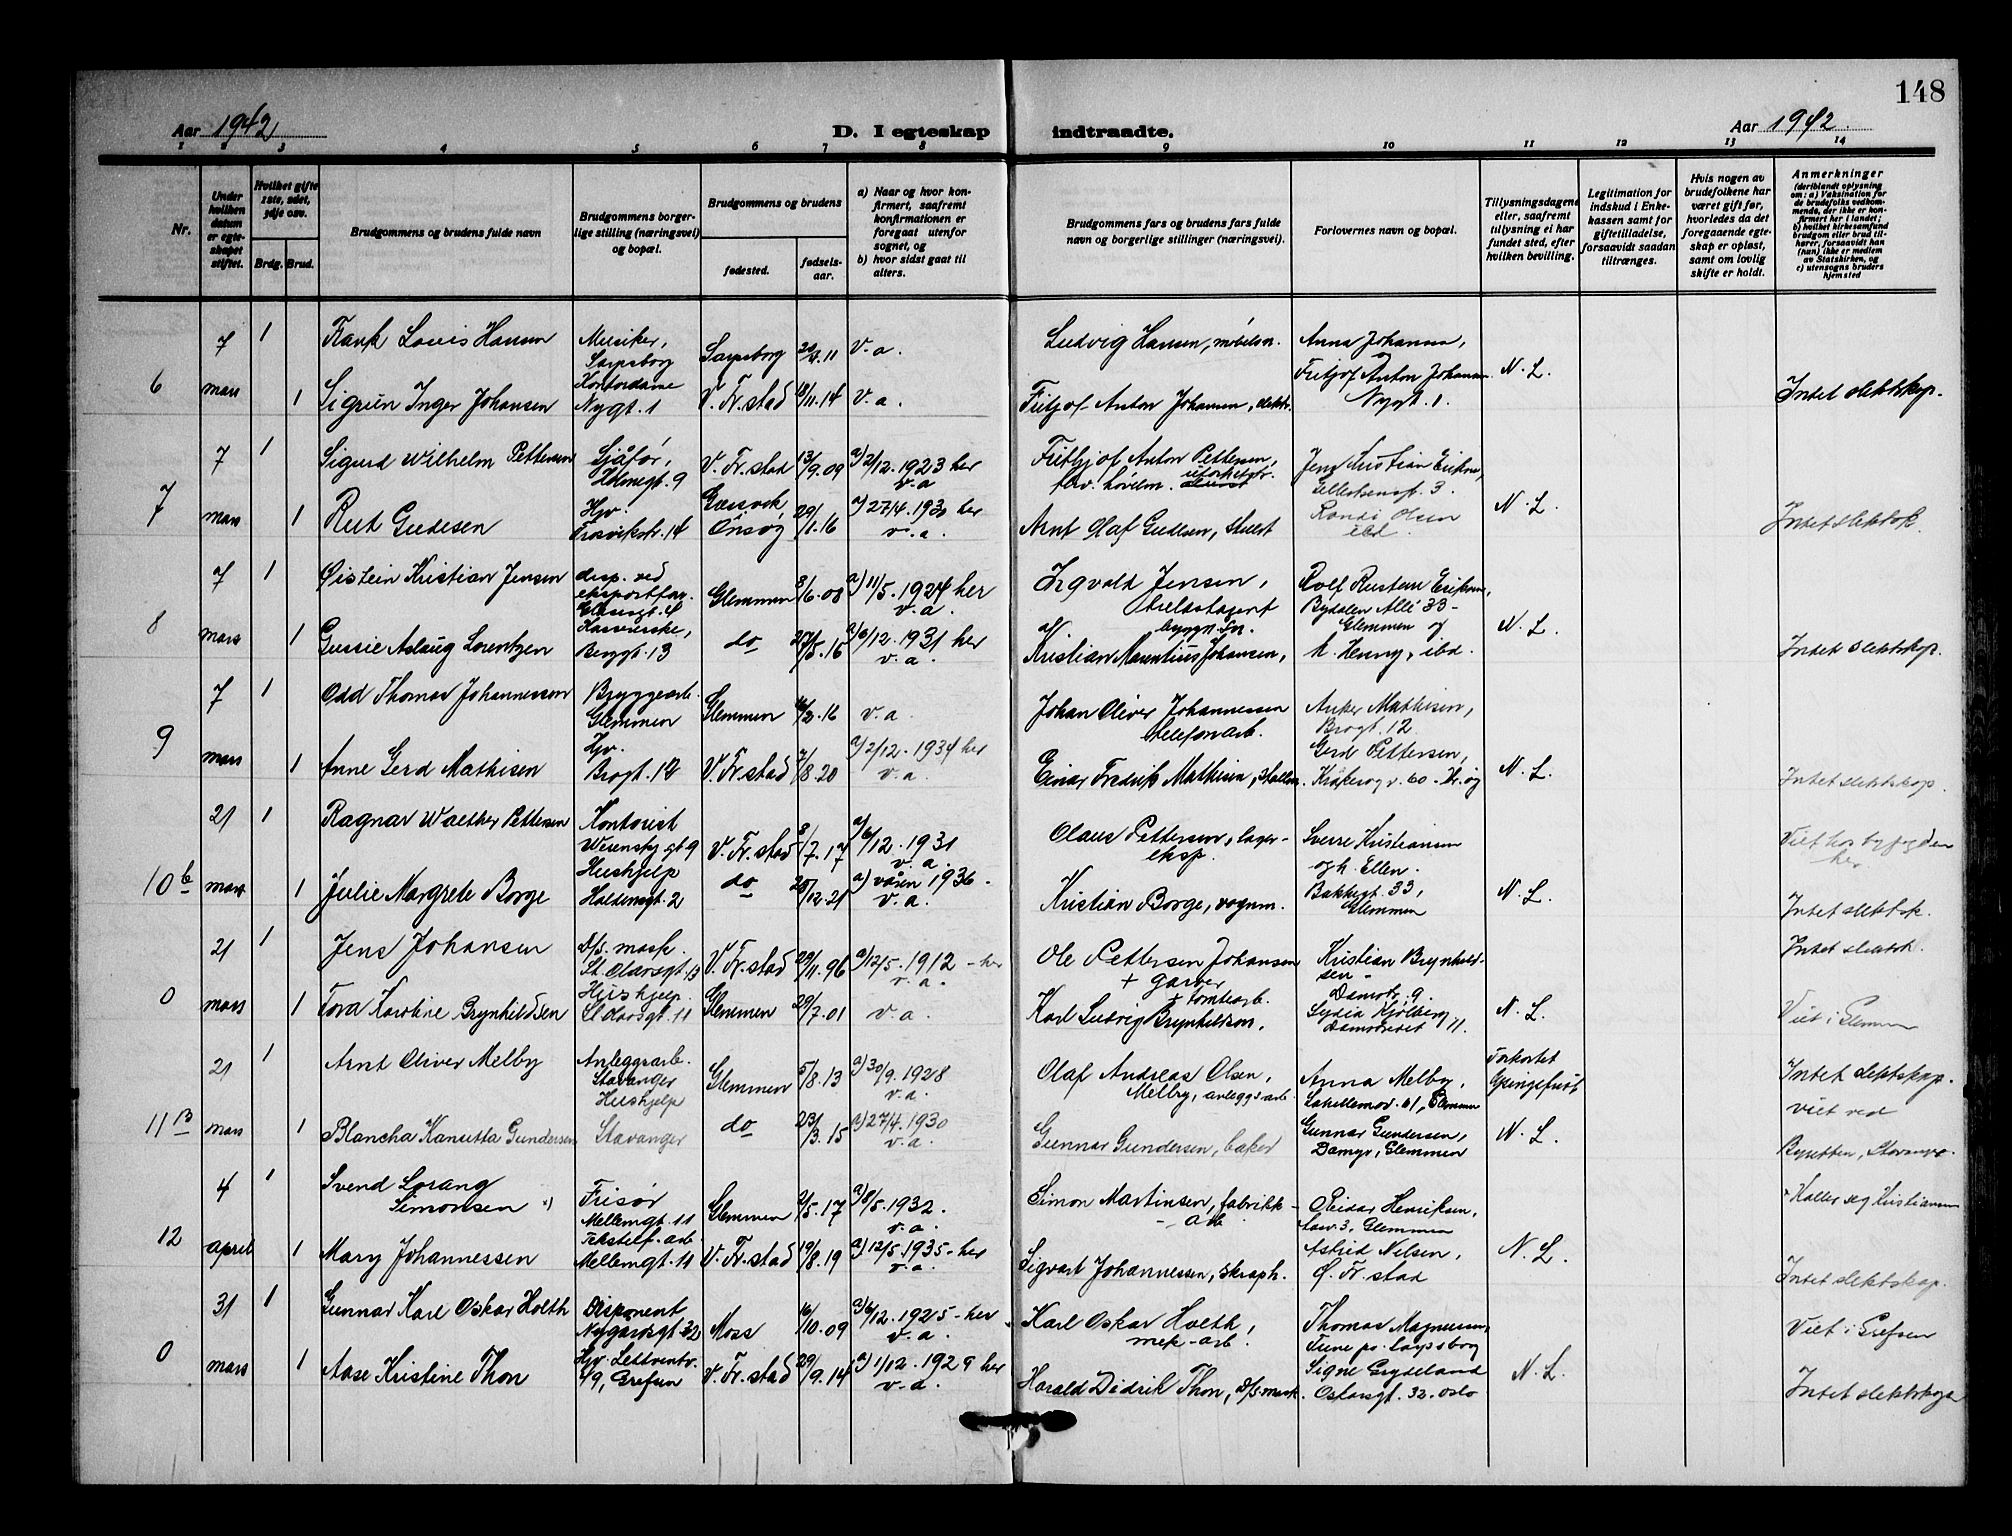 148
Aar 1942
D. I egteskap indtraadte.
Aar 1942.
1 2 3 4 5 6 7 8 9 10 11 12 13 14
Nr.
Under hvilken datum er egteskapet stiftet.
Hvilket gifte 1ste, 2det, 3dje osv.
Brdg. Brud.
Brudgommens og brudens fulde navn
Brudgommens borgerlige stilling (næringsvei) og bopæl.
Brudgommens og brudens
fødested.
fødselsaar.
a) Naar og hvor konfirmert, saafremt konfirmationen er foregaat utenfor sognet, og
b) hvor sidst gaat til alters.
Brudgommens fars og brudens fars fulde navn og borgerlige stillinger (næringsvei).
Forlovernes navn og bopæl.
Tillysningsdagene eller, saafremt tilysning ei har fundet sted, efter hvilken bevilling.
Legitimation for indskud i Enkekassen samt for giftetilladelse, forsaavidt saadan tiltrænges.
Hvis nogen av brudefolkene har været gift før, hvorledes da det foregaaende egteskap er opløst, samt om lovlig skifte er holdt.
Anmerkninger
(deriblandt oplysning om: a) Vaksination for de brudefolks vedkommende, der ikke er konfirmert her i landet; b) hvilket kirkesamfund brudgom eller brud tilhører, forsaavidt han (hun) ikke er medlem av Statskirken, og c) utensogns bruders hjemsted
6
7 mars
1
Frank Louis Hansen
Musiker, Sarpsborg
Sarpsborg
11
v.a.
Ludvig Hansen, møbelsn.
Anna Johansen,
Fritjof Anton Johansen
Nygt. 1.
1
Sigrun Inger Johansen
Kontordame
Nygt. 1
V. Fr.stad
18/11.14
v.a.
Fritjof Anton Johansen, elektr.
N. L.
Intet slektskap.
7
7 mars
1
Sigurd Wilhelm Pettersen
Sjåfør,
Holmegt. 9
V. Fr.stad
13/9.09
a) 2/12.1923 her
v.a
Frithjof Anton Pettersen,
Jens Kristian Eriksen,
1
Rut Gudesen
Hjv.
Trosvikstr. 14
Gressvik, Onsøy
29/1.16
a) 27/4.1930 her
v.a.
Arnt Olaf Gudesen,
Randi Olsen
ibd.
N. L.
Intet slektsk.
8
7 mars
1
Øistein Kristian Jensen
disp. ved
eksportfor.
Glemmen
8/6.08
a) 11/5.1924 her
v.a.
Ingvald Jensen,
trelastagent
Rolf Rustan Eriksen,
Bydalen Allé 33 -
Glemmen og
h. Henny, ibd.
1
Gussie Aslaug Lorentzen
Kasserske,
Berggt. 13
do
27/5.16
a) 6/12.1931 her
v.a.
Kristian Mauritius Johansen,
N. L.
Intet slektskap.
9
7 mars
1
Odd Thomas Johannessen
Bryggearb.
Glemmen
Glemmen
/2.16
v.a.
Johan Oliver Johannessen
telefonarb.
Anker Mathisen,
Brogt. 12.
1
Anne Gerd Mathisen
Hjv.
Brogt. 12
V. Fr.stad
7/8.20
a) 2/12.1934 her
v.a.
Einar Fredrik Mathisen,
Gerd Pettersen,
Kråkerøy v. 60 - Kr.øy
N. L.
Intet slektskap.
10b
21 mars
1
Ragnar Walther Pettersen
Kontorist
Wesenbg gt 9
V. Fr.stad
8/7.17
a) 6/12.1931
v.a.
Olaus Pettersen, lager-
eksp.
Sverre Kristiansen
og h. Ellen.
Bakkegt. 33,
Glemmen
Viet hos byfogden
her
1
Julie Margrete Borge
Hushjelp
Haldensgt. 2
do
28/12.21
a) våren 1936.
v.a.
Kristian Borge, vognm.
N. L.
Intet slektsk.
0
21 mars
1
Jens Johansen
D/S. mask.
St. Olavsgt. 13
V. Fr.stad
29/11.96
a) 12/5.1912 - her
v.a.
Ole Pettersen Johansen
+ garver
Kristian Brynhild-
sen -
Damstr. 9.
Intet slektsk.
1
Tora Karoline Brynhildsen
Hushjelp.
St. Olavsgt. 11
Glemmen
29/7.01
v.a.
+ tomtearb.
Karl Ludvig Brynhildsen.
Lydia Kjølberg,
N. L.
Viet i Glemmen
11B
21 mars
1
Arnt Oliver Melby
Anleggsarb.
Stavanger
Glemmen
5/8.13
a) 30/9.1928
v.a.
Olaf Andreas Olsen,
Melby, anleggsarb.
Anna Melby,
61, Glemmen
Forkortet
lysningsfrist
Intet slektskap.
viet ved
1
Blancha Kanutta Gundersen
Hushjelp
Stavanger
do
23/3.15
a) 27/4.1930
v.a.
Gunnar Gundersen, baker
Gunnar Gundersen,
Damyr, Glemmen
N. L.
Byretten, Stavanger
12
4 april
1
Svend Lorang
Simonsen x)
Frisør
Mellemgt. 11
Glemmen
2/5.17
a) 8/5.1932.
v.a.
Simon Martinsen, fabrikk-
- arb.
Reidar Henriksen,
Glemmen
x Kaller seg Kristiansen
1
Mary Johannessen
Tekstilf. arb.
Mellemgt. 11
V. Fr.stad
19/8.19
a) 12/5.1935 - her
v.a.
Sigvart Johannessen, skraph.
Astrid Nilsen,
Ø. Fr.stad
N. L.
Intet slektskap.
0
31 mars
1
Gunnar Karl Oskar Holth
Disponent
Nygårdsgt. 32
Moss
16/10.09
a) 6/12.1925 - her
v.a.
Karl Oskar Holth,
mek-arb.
Thomas Magnussen,
Tune pr. Sarpsborg
Viet i Grefsen
1
Aase Kristine Thon
Hjv.
49, Grefsen
V. Fr.stad
29/9.14
a) 1/12.1929 her
v.a.
Harald Didrik Thon, D/S mask.
Signe Grydeland
Oscarsgt. 32. Oslo
N. L.
Intet slektskap